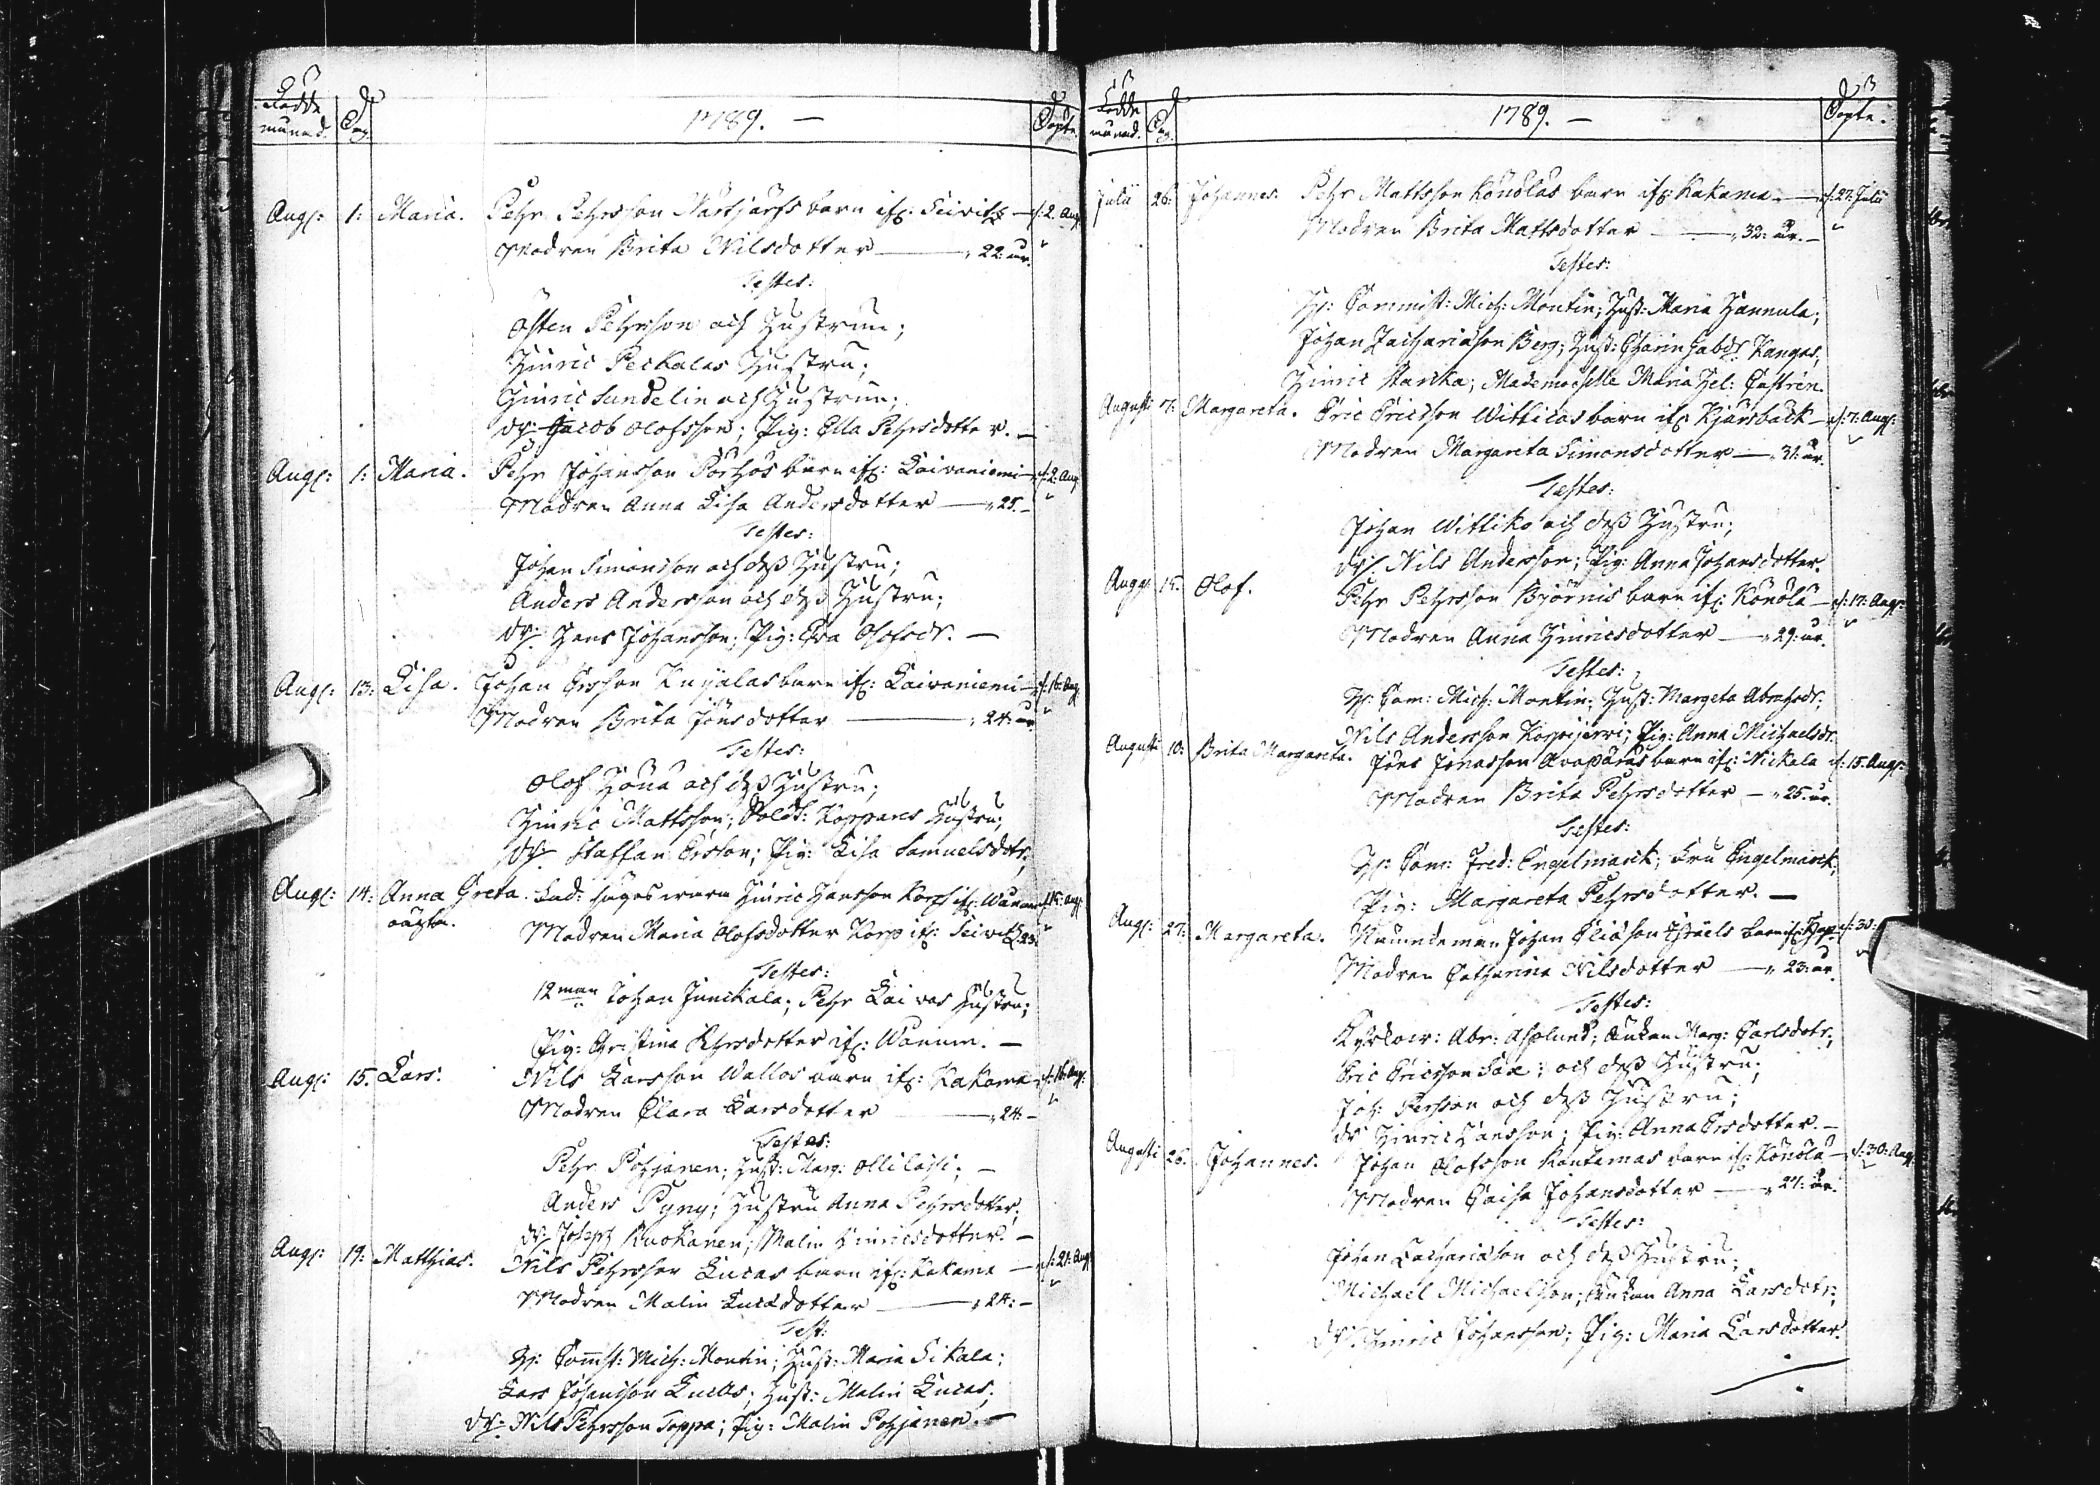 Födde månad. Dag. 1789. — Döpte.
Aug: 1: Maria. Pehr Pehrsson Närkjärfs barn if: Seivits — d: 2. Aug
Modren Brita Nilsdotter — 22: år.
Testes:
Östen Pehrson och Hustrun;
Hinric Peckalas Hustru;
Hinric Sundelin och Hustrun;
dr: Jacob Olofsson; Pig: Ella Pehrsdotter. —
Aug: 1: Maria. Pehr Johansson Pörhös barn if: Laivaniemi — d: 2: Aug
Modren Anna Lisa Andersdotter — 25. —
Testes:
Johan Simonsson och dess Hustru;
Anders Andersson och dess Hustru;
dr: Hans Johansson; Pig: Eva Olofsdr. —
Aug: 13: Lisa. Johan Ersson Knyälas barn if: Laivaniemi — d: 16: Aug
Modren Brita Jönsdotter — 24: år
Testes:
Olof Höua och dess Hustru;
Hinric Mattsson; Sold: Koppares Hustru;
dr: Staffan Ersson; Pig: Lisa Samuelsdotr;
Aug: 14: Anna Greta. Hinric Hansson Korp if: d: 15: Aug:
oägta. Modren Maria Olofsdotter Korp if: Seivits 23:
Testes:
12man Johan Junckala; Pehr Laivas Hustru;
Pig: Christina Pehrsdotter if: Wonum. —
Aug: 15. Lars. Nils Larsson Wallos barn if: Kakama — d: 16: Aug:
Modren Clara Larsdotter — 24: —
Testes:
Pehr Pohjanen; Hust: Marg: Ollilassi; —
Anders Pyny; Hustru Anna Pehrsdotter;
dr: Joseph Ruokanen; Malin Hinricsdotter. —
Aug: 19: Matthias. Nils Pehrsson Lucas barn if: Kakama — d: 21: Aug
Modren Malin Lucasdotter — 24: —
Test:
H: Commst: Mich: Montin; Hust: Maria Sikala;
Lars Johansson Lucas; Hust: Malin Lucas;
dr: Nils Pehrsson Toppa; Pig: Malin Pohjanen. —
Födde månad. Dag. 1789. — Döpte.
Julii 26: Johannes. Pehr Mattsson Könöläs barn if: Kakama — d: 27: Julii
Modren Brita Mattsdotter — 32: år. —
Testes:
H: Commiss: Mich: Montin; Hust: Maria Hannula;
Johan Zachariason Berg; Hust: Charin Gabdr. Kangas;
Hinric Harika; Mademoiselle Maria Hel: Castrén.
Augusti 7: Margareta. Eric Ericsson Wittikas barn if: Kjärsbäck — d: 7: Aug:
Modren Margareta Simonsdotter — 31: år.
Testes:
Johan Wittiko och dess Hustru;
dr: Nils Andersson; Pig: Anna Johansdotter.
Aug: 15: Olof. Pehr Pehrsson Björnis barn if: Könölä — d: 17: Aug:
Modren Anna Hinricsdotter — 29: år.
Testes:
H: Com: Mich: Montin; Hust: Margeta Abrahsdr.
Nils Andersson Korpijerwi; Pig: Anna Michaelsdr.
Augusti 10: Brita Margareta. Jöns Jonasson Avapäräs barn if: Nickala d: 15. Aug:
Modren Brita Pehrsdotter — 25: år.
Testes:
H: Com: Fred: Engelmarck; Fru Engelmarck;
Pig: Margareta Pehrsdotter. —
Aug: 27: Margareta. Nämndeman Johan Eliason Israels barn d: 30:
Modren Catharina Nilsdotter — 23: år.
Testes:
Kyrkow: Abr: Asplund; Enkan Marg: Carlsdotr;
Eric Ericsson Sää; och dess Hustru;
Joh: Persson och dess Hustru;
dr: Hinric Hansson; Pig: Anna Ersdotter. —
Augusti 26. Johannes. Johan Olofsson Kontkamas barn if: Könölä — d: 30: Aug:
Modren Caisa Johansdotter — 27: år.
Testes:
Johan Zachariason och dess Hustru;
Michael Michaelsson; Enkan Anna Larsdotr;
dr: Hinric Johansson; Pig: Maria Larsdotter.